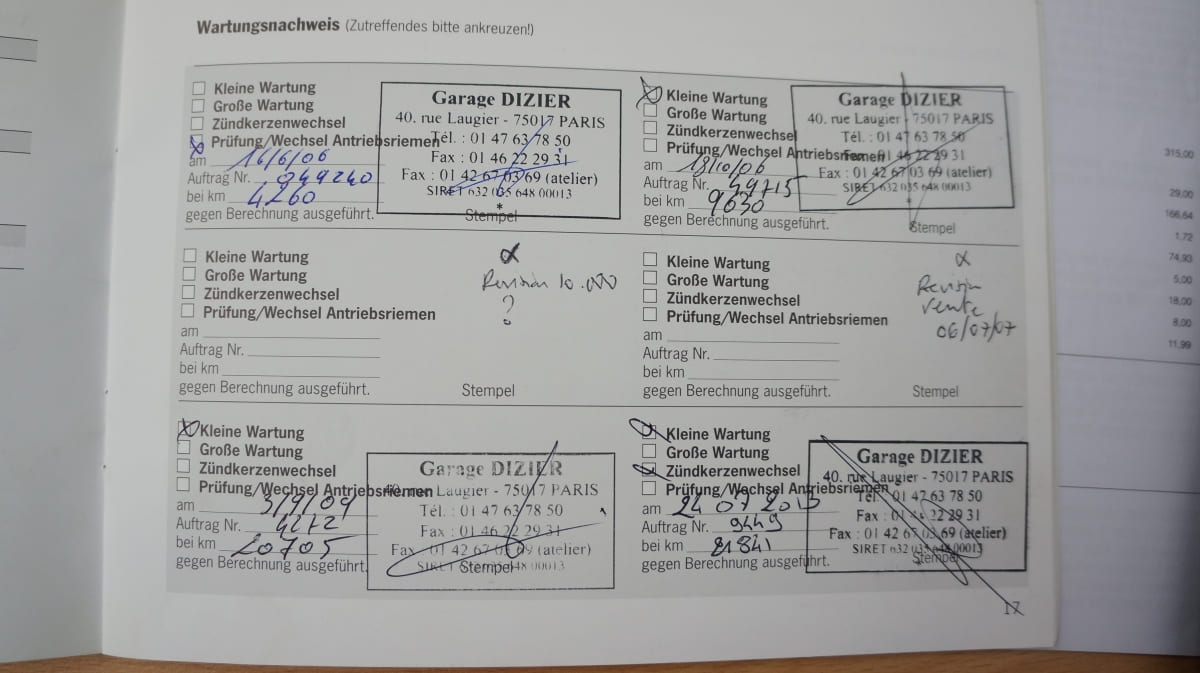 Wartungsnachweis (Zutreffendes bitte ankreuzen!)
Kleine Wartung
Große Wartung
Zündkerzenwechsel
Prüfung/Wechsel Antriebsriemen
am 16/6/06
Auftrag Nr. 049240
bei km 4260
gegen Berechnung ausgeführt.
Garage DIZIER
40. rue Laugier - 75017 PARIS
Tél. : 01 47 63 78 50
Fax : 01 46 22 29 31
Fax : 01 42 67 03 69 (atelier)
SIRET 632 035 648 00013
*
Stempel
Kleine Wartung
Große Wartung
Zündkerzenwechsel
Prüfung/Wechsel Antriebsriemen
am 18/10/06
Auftrag Nr. 49715
bei km 9630
gegen Berechnung ausgeführt.
Garage DIZIER
40. rue Laugier - 75017 PARIS
Tél. : 01 47 63 78 50
Fax : 01 46 22 29 31
Fax : 01 42 67 03 69 (atelier)
SIRET 632 035 648 00013
Stempel
Kleine Wartung
Große Wartung
Zündkerzenwechsel
Prüfung/Wechsel Antriebsriemen
am
Auftrag Nr.
bei km
gegen Berechnung ausgeführt.
Revision 10.000
?
Stempel
Kleine Wartung
Große Wartung
Zündkerzenwechsel
Prüfung/Wechsel Antriebsriemen
am
Auftrag Nr.
bei km
gegen Berechnung ausgeführt.
Revision
vente
06/07/07
Stempel
Kleine Wartung
Große Wartung
Zündkerzenwechsel
Prüfung/Wechsel Antriebsriemen
am 3/9/09
Auftrag Nr. 4272
bei km 20705
gegen Berechnung ausgeführt.
Garage DIZIER
40. rue Laugier - 75017 PARIS
Tél. : 01 47 63 78 50
Fax : 01 46 22 29 31
Fax : 01 42 67 03 69 (atelier)
Stempel
Kleine Wartung
Große Wartung
Zündkerzenwechsel
Prüfung/Wechsel Antriebsriemen
am 24 07 2013
Auftrag Nr. 9449
bei km 21841
gegen Berechnung ausgeführt.
Garage DIZIER
40. rue Laugier - 75017 PARIS
Tél. : 01 47 63 78 50
Fax : 01 46 22 29 31
Fax : 01 42 67 03 69 (atelier)
SIRET 632 035 648 00013
Stempel
17
315,00
29,00
166,64
1,72
74,93
5,00
18,00
8,00
11,99